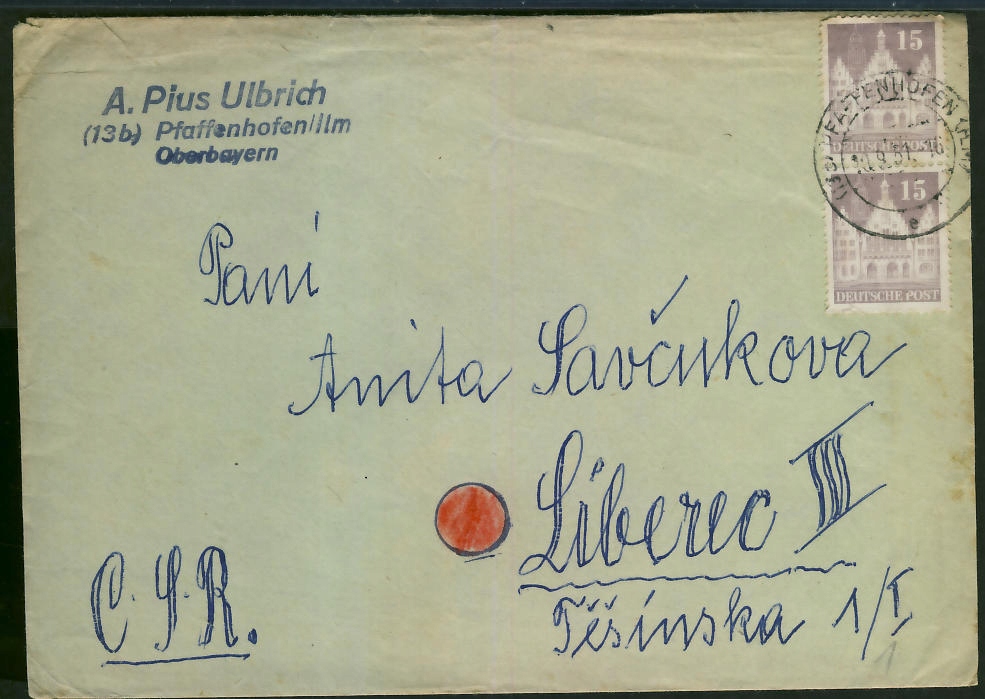 A. Pius Ulbrich
(13b) Pfaffenhofen/Ilm
Oberbayern
15
DEUTSCHE POST
15
DEUTSCHE POST
PFAFFENHOFEN (ILM)
10.9.51.-16
e
Pani
Anita Savčukova
Liberec III
Těšínska 1/I
1
C.S.R.